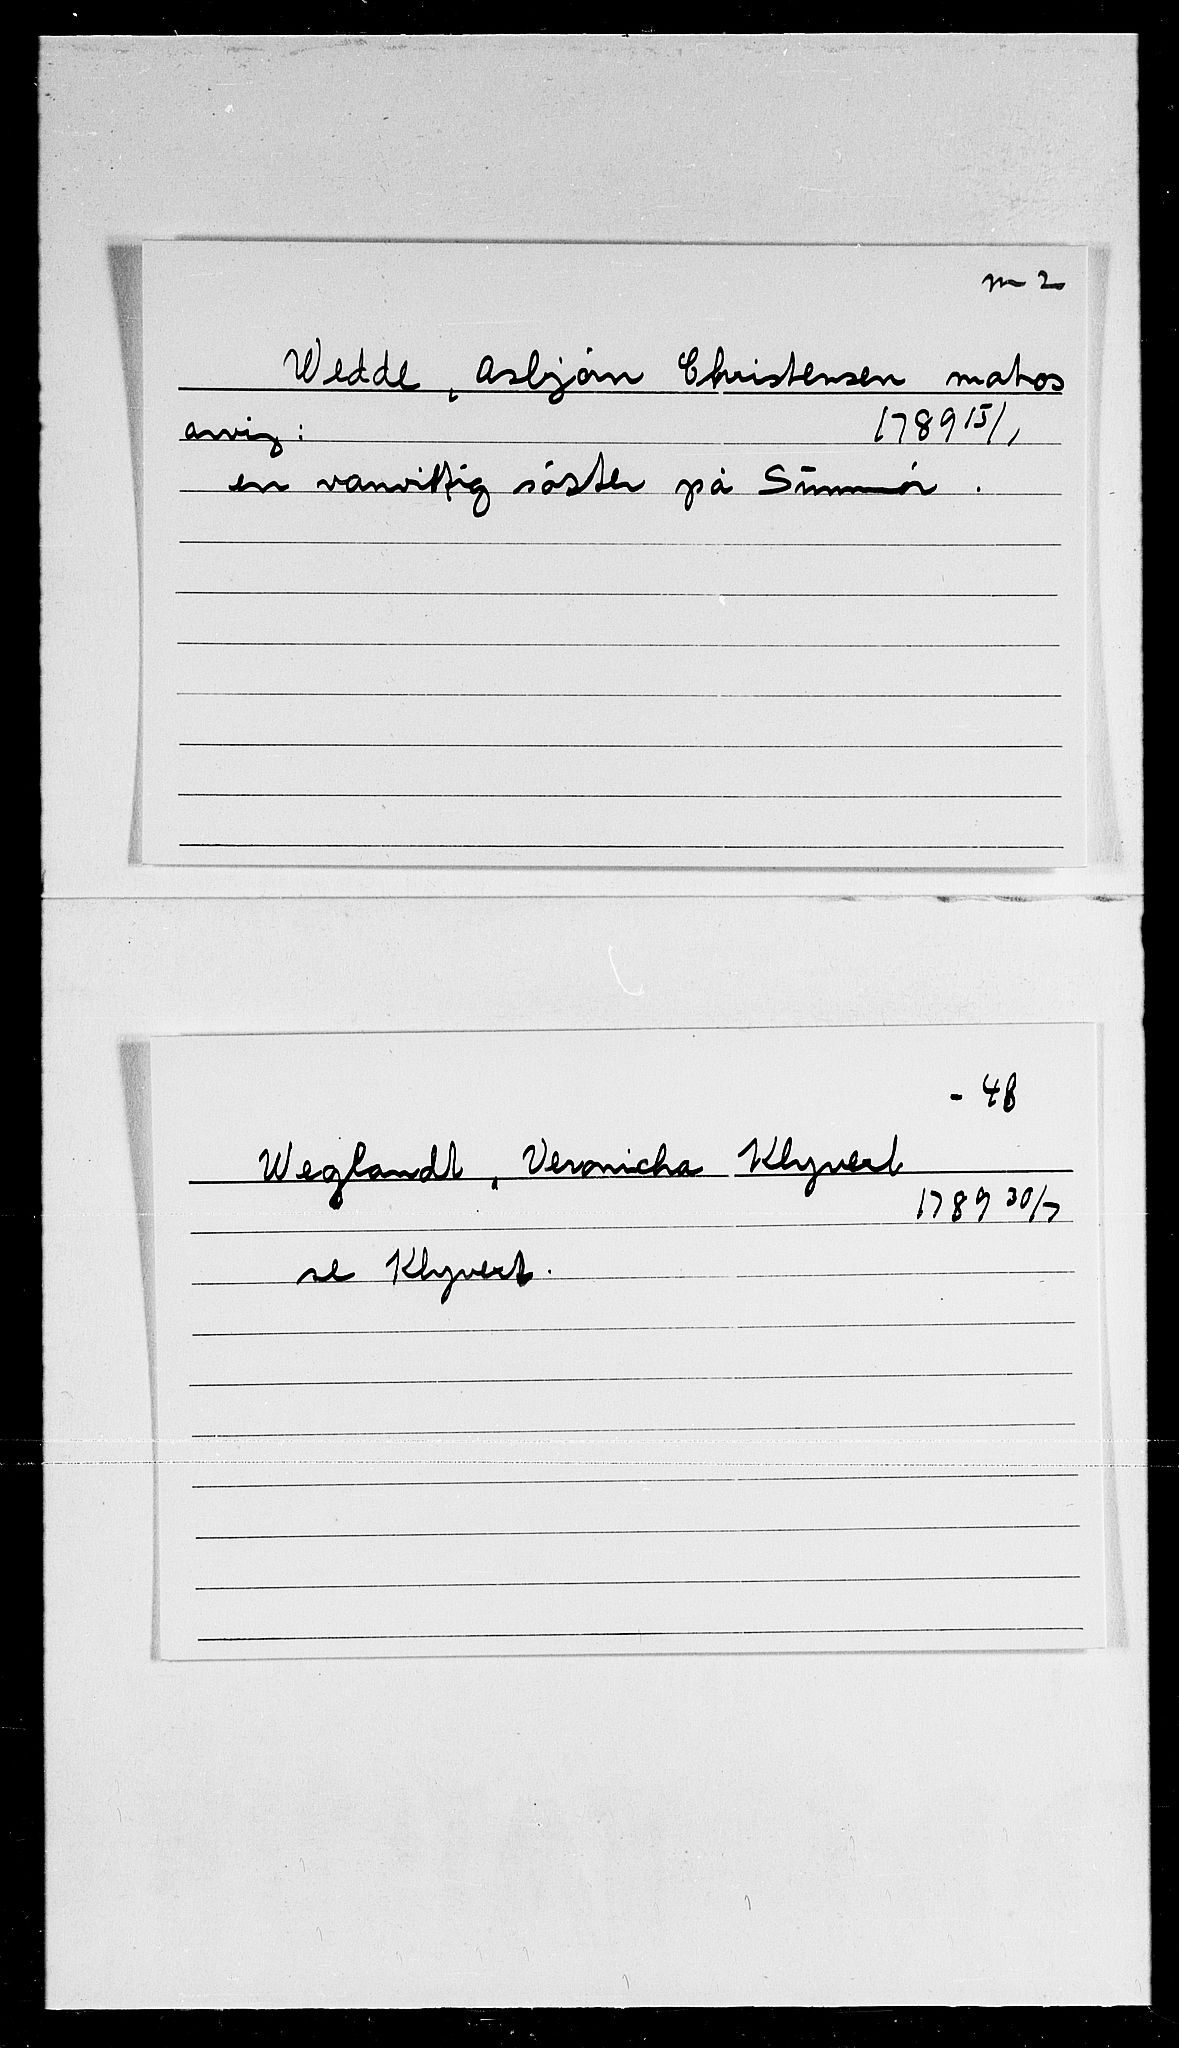 m 2
Wedde, Asbjörn Christensen matros
arving: 1789 15/1
en vanvittig söster på Sünmör.
- 48
Weglandt, Veronicha Klyvert
1789 30/7
se Klyvert.